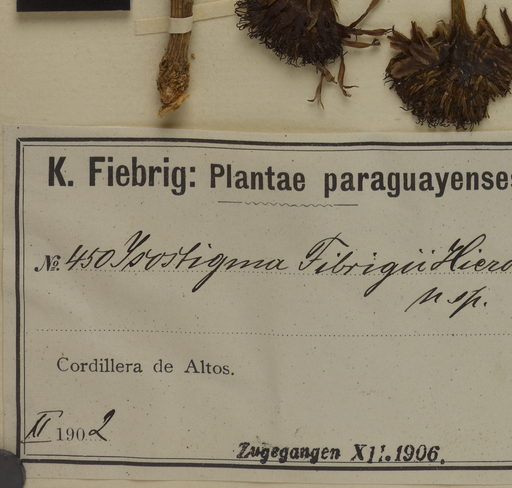 K. Fiebrig: Plantae paraguayenses
No. 450 Isostigma Fibrigii Hiero
n sp.
Cordillera de Altos.
XI 1902
Zugegangen XII. 1906.